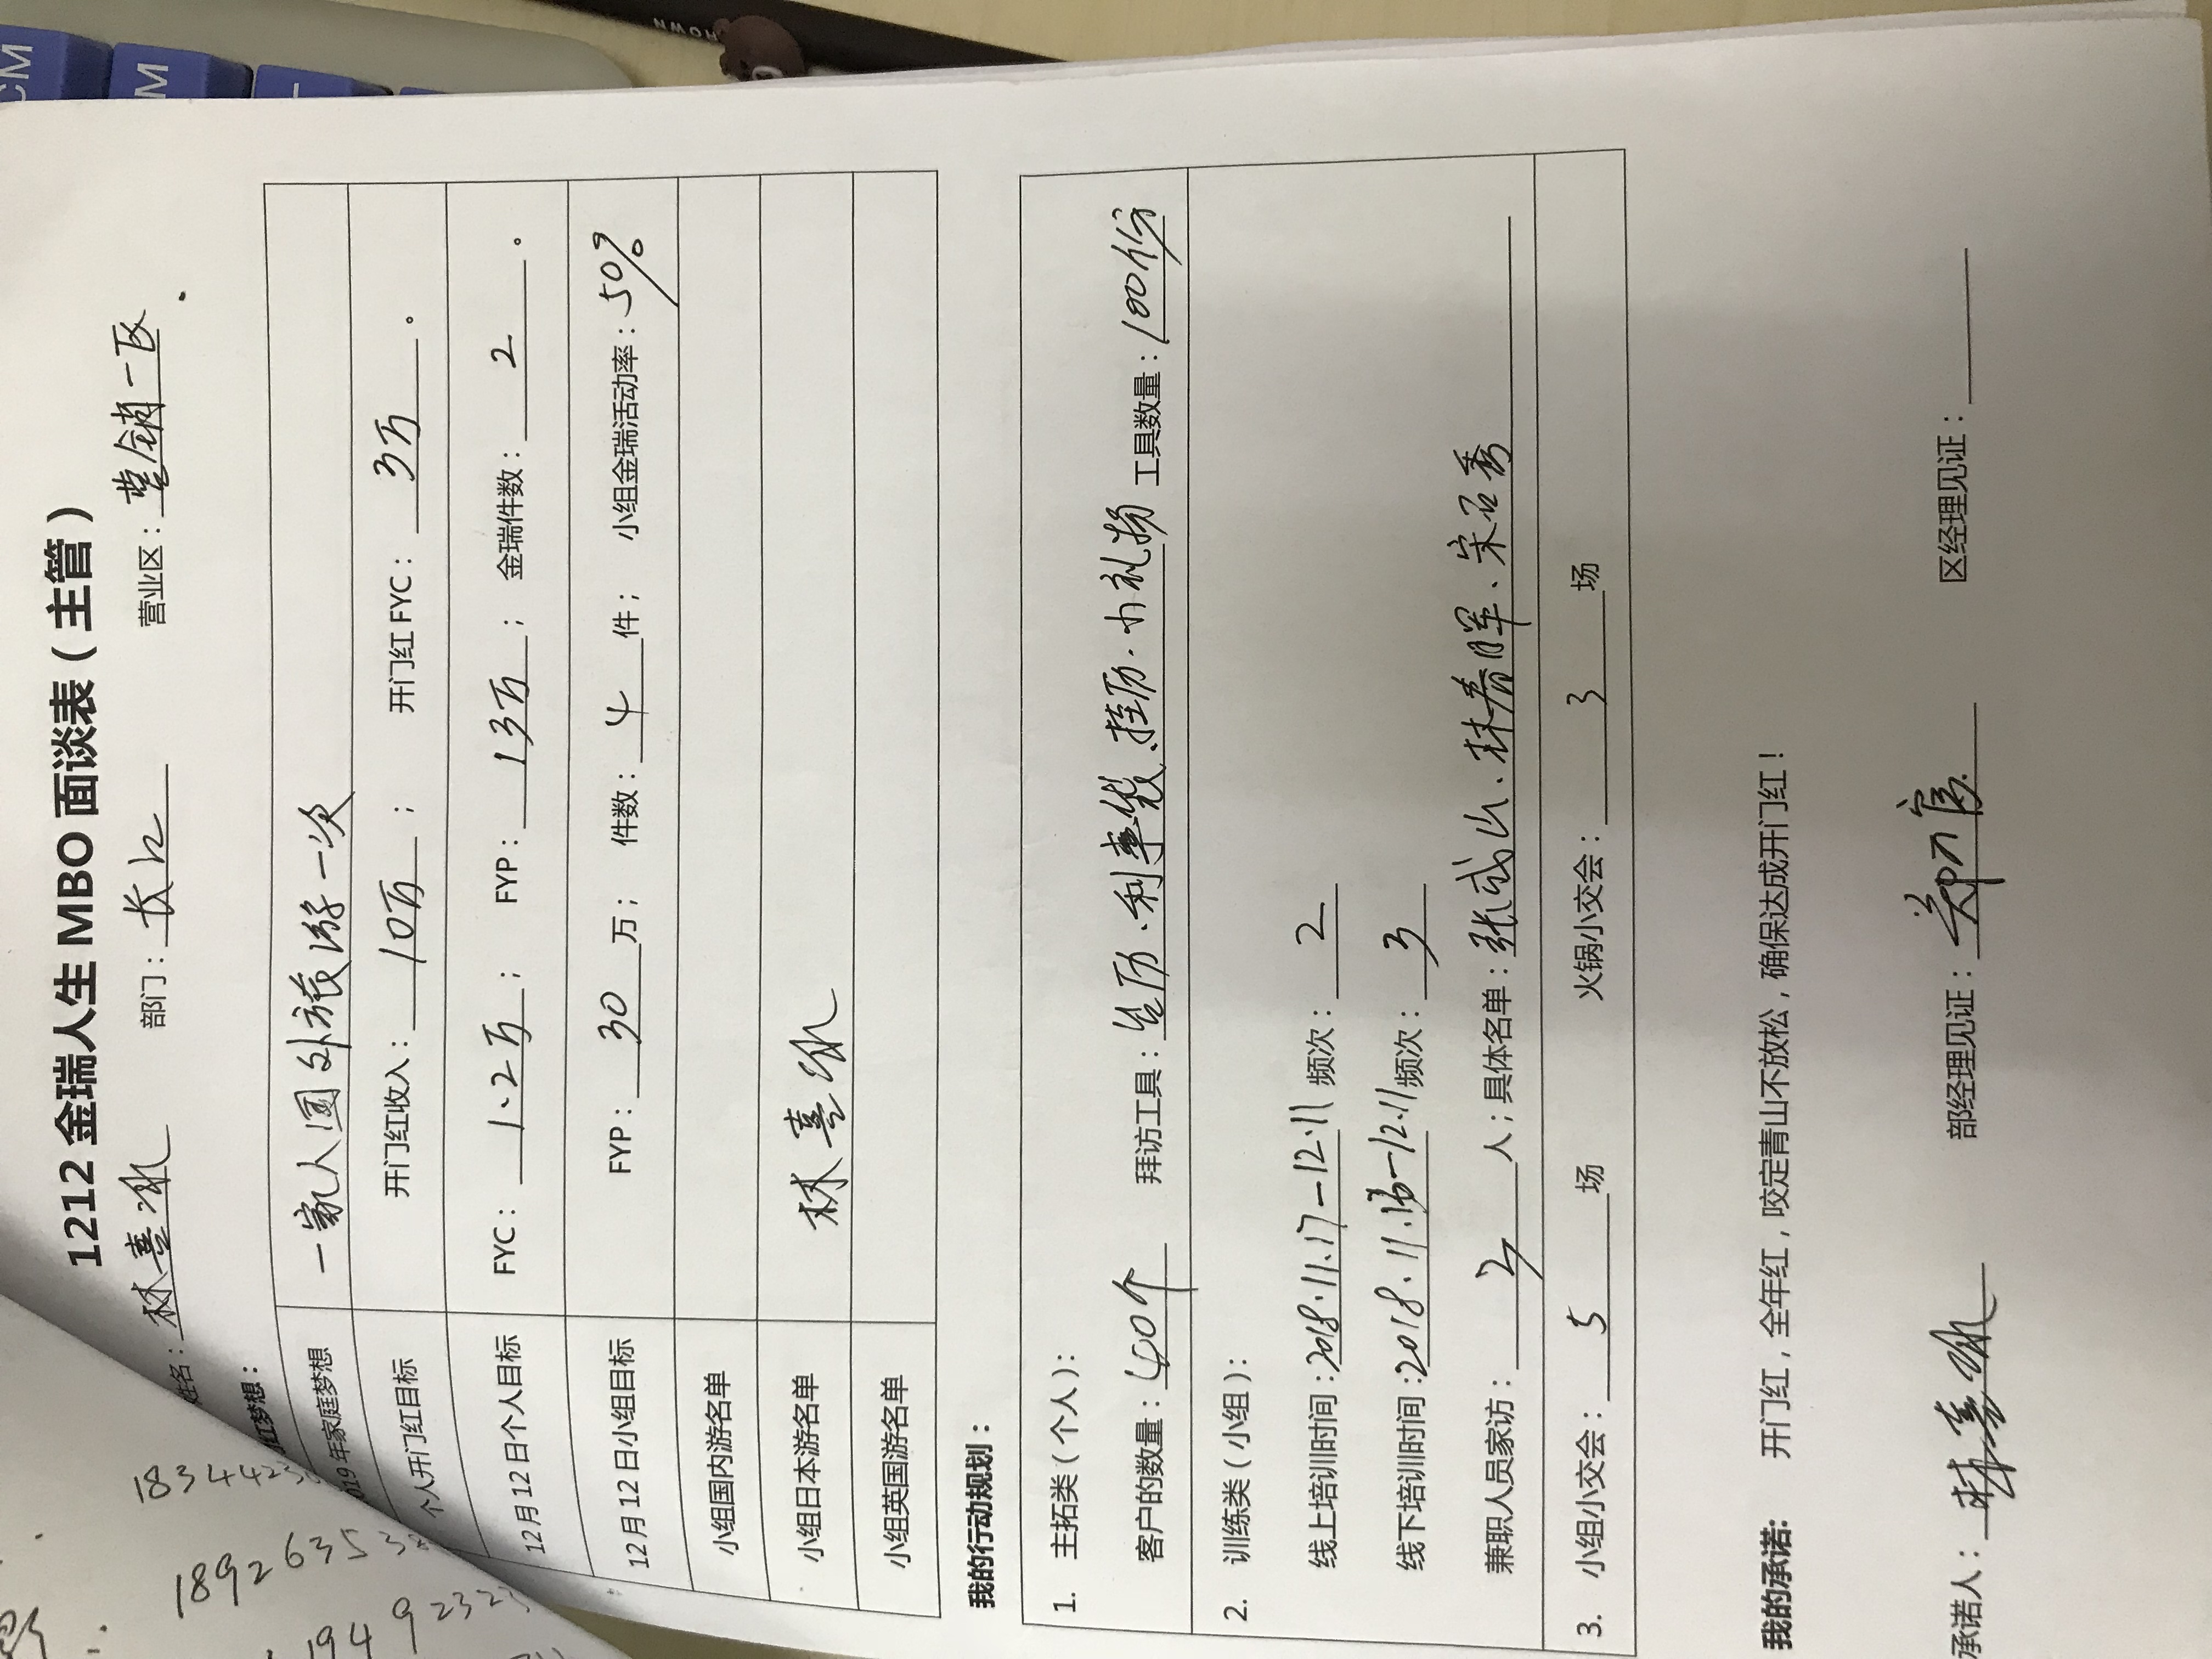 1212 金瑞人生 MBO 面谈表（主管）
姓名：林喜 部门：长江 营业区：营销一区
红梦想：
019 年家庭梦想 一家人国外旅游一次
个人开门红目标 开门红收入：10万； 开门红 FYC：3万。
12 月 12 日个人目标 FYC：1.2万； FYP：13万； 金瑞件数：2。
12 月 12 日小组目标 FYP：30万； 件数：4件； 小组金瑞活动率：50%
小组国内游名单
小组日本游名单 林喜
小组英国游名单
我的行动规划：
1. 主拓类（个人）：
客户的数量：40个 拜访工具：台历、利事袋、挂历、小礼物 工具数量：100份
2. 训练类（小组）：
线上培训时间：2018.11.17-12.11 频次：2
线下培训时间：2018.11.13-12.11 频次：3
兼职人员家访：2人；具体名单：张成山、林春晖、宋石秀
3. 小组小交会：5场 火锅小交会：3场
我的承诺： 开门红，全年红，咬定青山不放松，确保达成开门红！
承诺人：林喜 部经理见证：郑 区经理见证：
1834423
18926353
194 9232
CM
M
BROWN